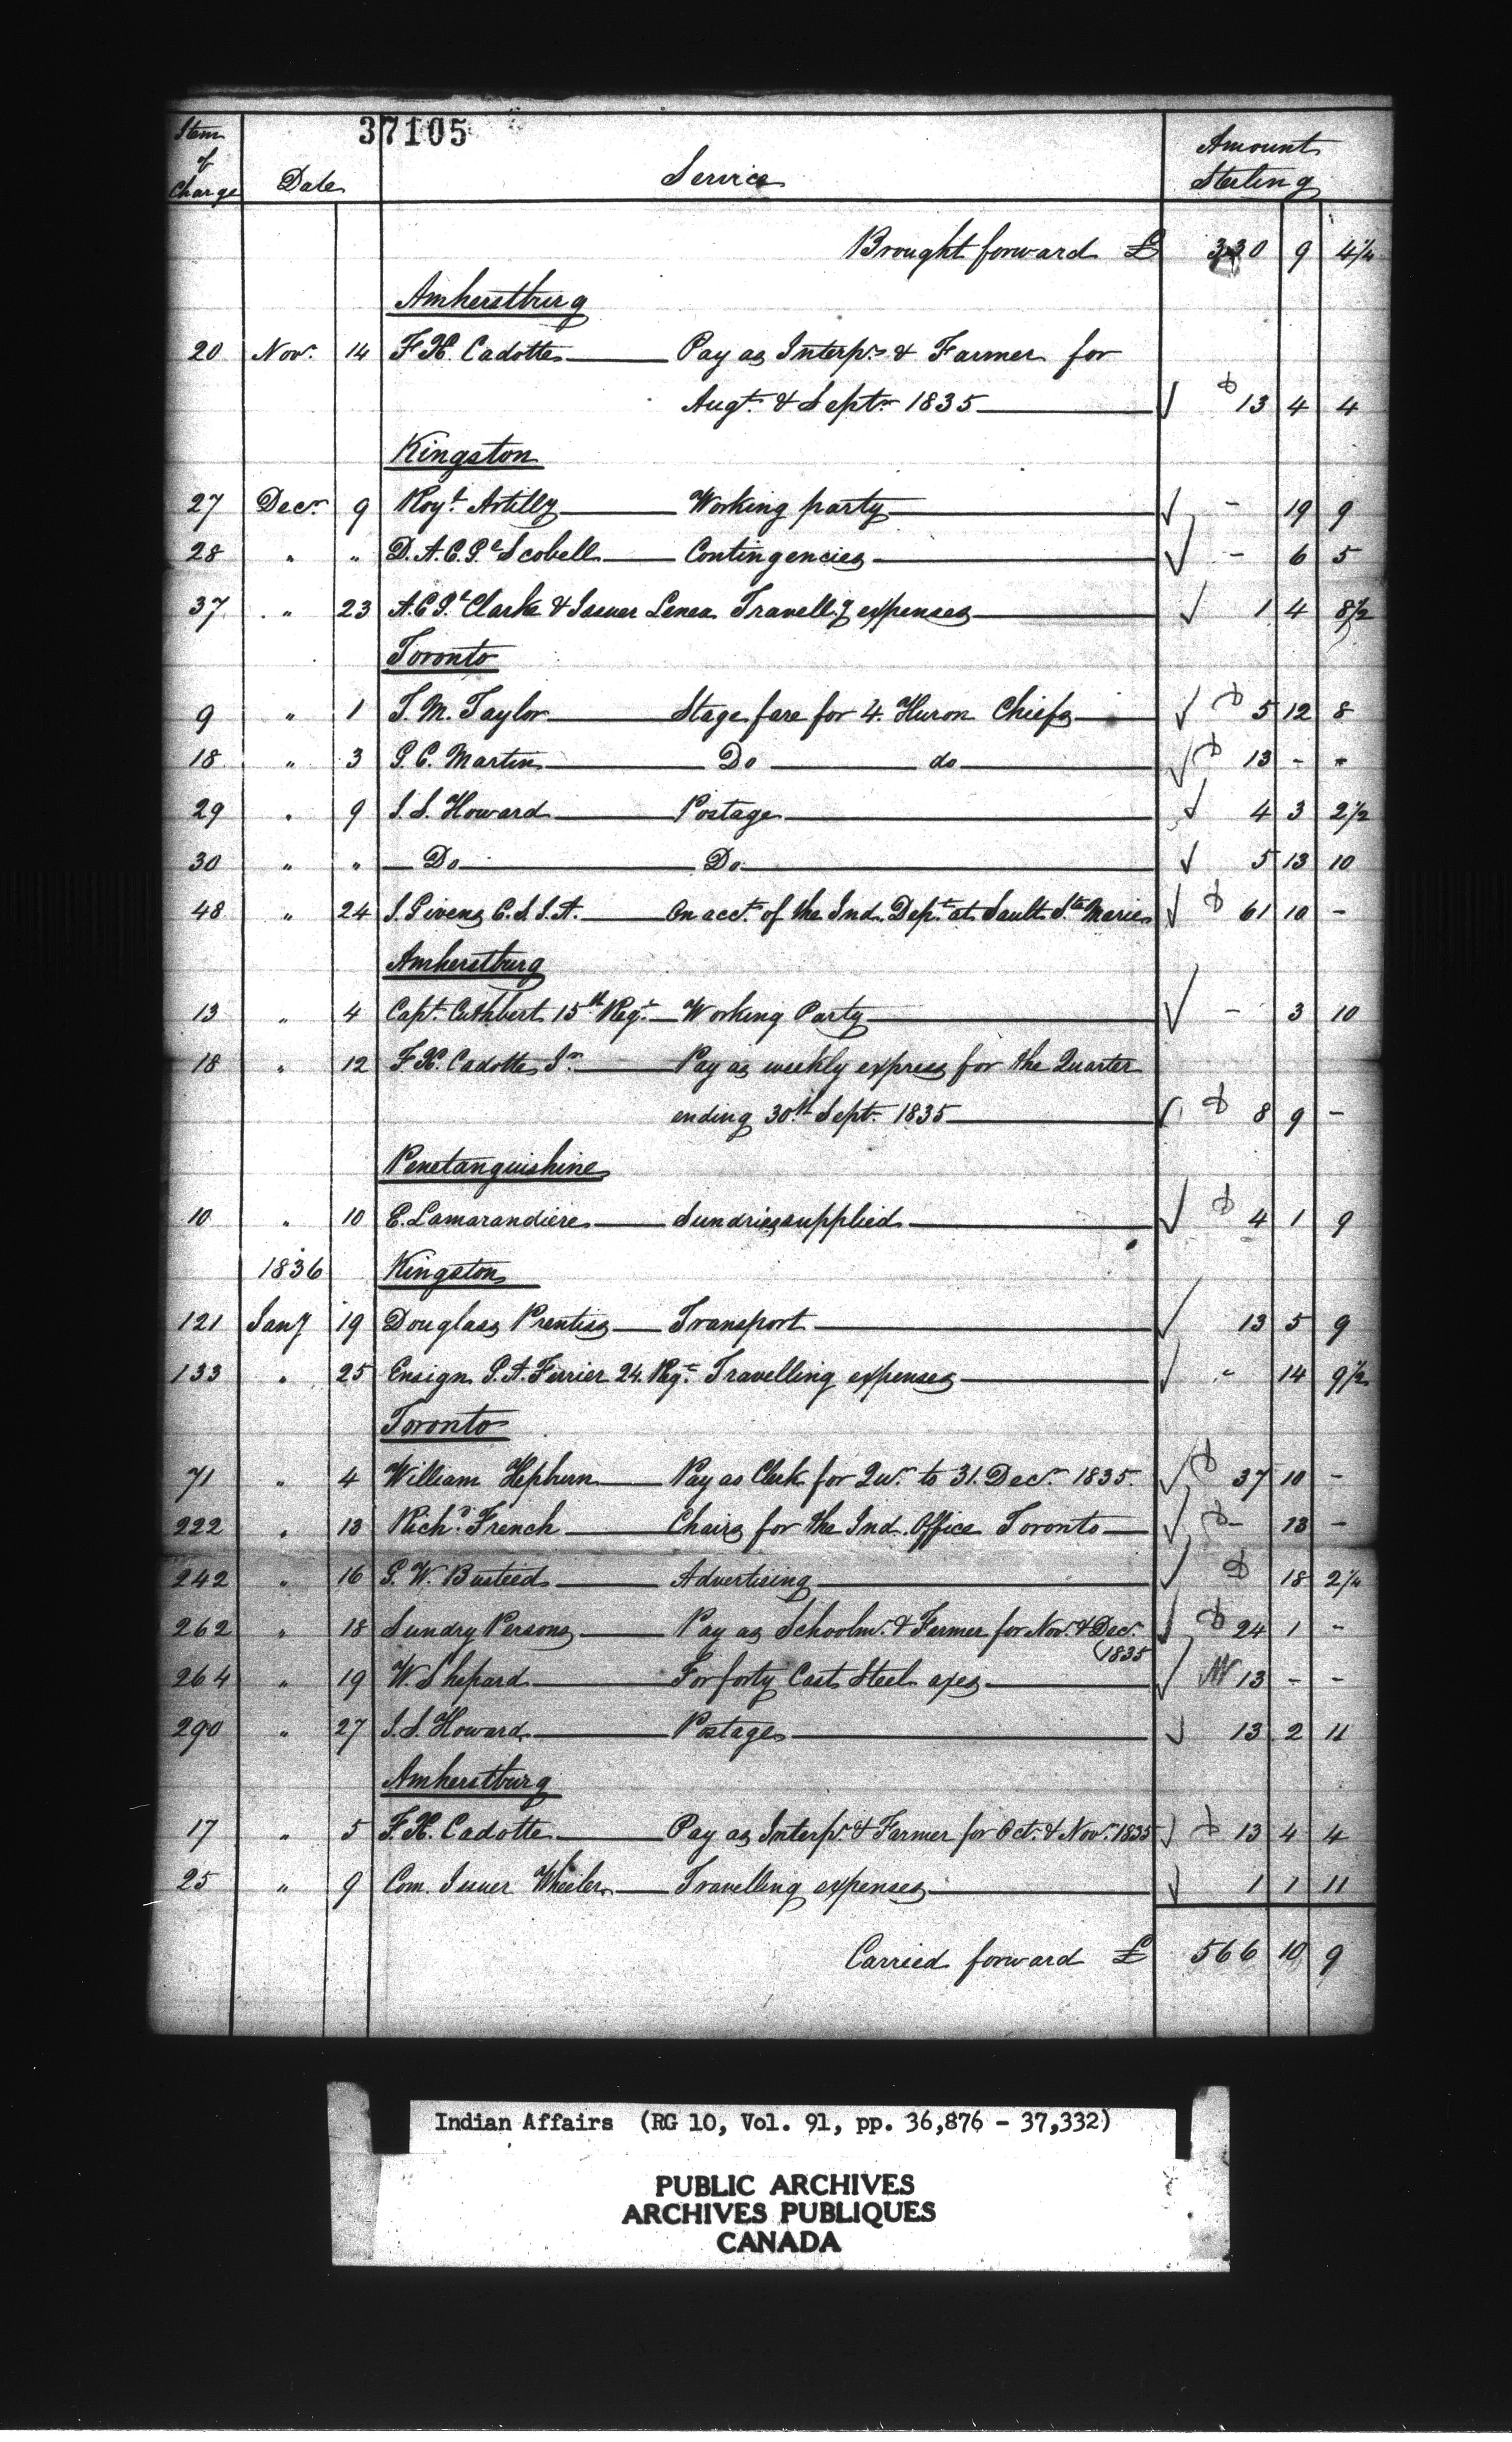 37105
Item of Charge Date Service Amount Sterling
Brought forward £ 330 9 4¼
Amherstburg
20 Novr. 14 F. X. Cadotte Pay as Interpr. & Farmer for
Augt. & Septr. 1835 ✓ 13 4 4
Kingston
27 Decr. 9 Royl. Artilly Working party ✓ - 19 9
28 " " D.A.C.Gl. Scobell Contingencies ✓ - 6 5
37 " 23 A.C.Gl. Clarke & Issuer Lenea Travellg. expenses ✓ 1 4 8½
Toronto
9 " 1 T. M. Taylor Stage fare for 4. Huron Chiefs ✓ 5 12 8
18 " 3 P. C. Martin Do do ✓ 13 - "
29 " 9 J. S. Howard Postage ✓ 4 3 2½
30 " " Do Do ✓ 5 13 10
48 " 24 J. Givens C.S.I.A. On acct. of the Ind. Dept. at Sault Ste. Marie ✓ 61 10 -
Amherstburg
13 " 4 Capt. Cuthbert 15th Regt. Working Party ✓ - 3 10
18 " 12 F. X. Cadotte Jr. Pay as weekly express for the Quarter
ending 30th Septr. 1835 ✓ 8 9 -
Penetanguishine
10 " 10 E. Lamarandiere Sundries supplied ✓ 4 1 9
1836 Kingston
121 Jany 19 Douglass Prentiss Transport ✓ 13 5 9
133 " 25 Ensign P. A. Ferrier 24. Regt. Travelling expenses ✓ " 14 9½
Toronto
71 " 4 William Hepburn Pay as Clerk for Qur. to 31. Decr. 1835. ✓ 37 10 -
222 " 13 Richd. French Chairs for the Ind. Office Toronto ✓ - 13 -
242 " 16 G. W. Busteed Advertising ✓ 18 2¼
262 " 18 Sundry Persons Pay as Schoolmr. & Farmer for Nov. & Decr. 1835 ✓ 24 1 -
264 " 19 W. Shepard For forty Cast Steel axes ✓ 13 - -
290 " 27 J. S. Howard Postages ✓ 13 2 11
Amherstburg
17 " 5 F. X. Cadotte Pay as Interpr. & Farmer for Oct. & Novr. 1835 ✓ 13 4 4
25 " 9 Com. Issuer Wheeler Travelling expenses ✓ 1 1 11
Carried forward £ 566 10 9
Indian Affairs (RG 10, Vol. 91, pp. 36,876 - 37,332)
PUBLIC ARCHIVES
ARCHIVES PUBLIQUES
CANADA